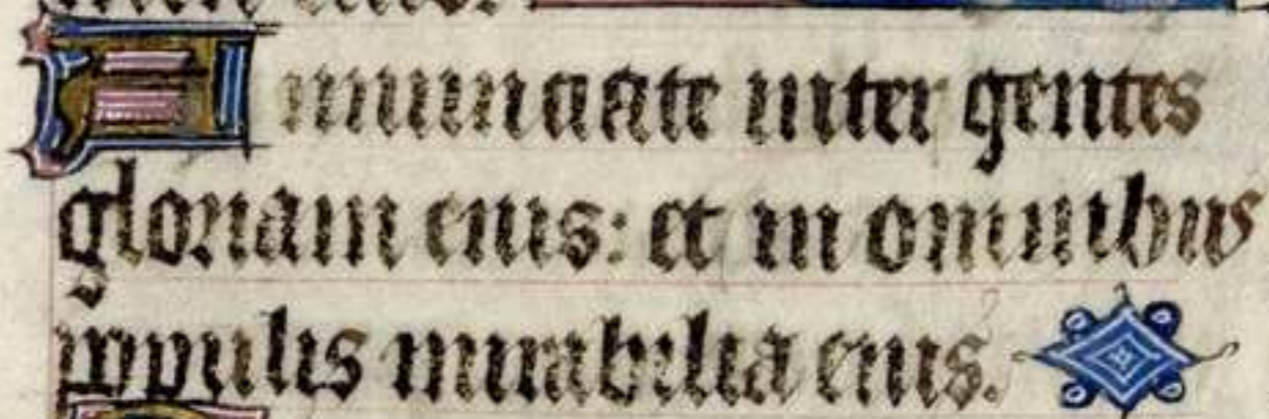 Annunciate inter gentes
gloriam eius: et in omnibus
populis mirabilia eius.